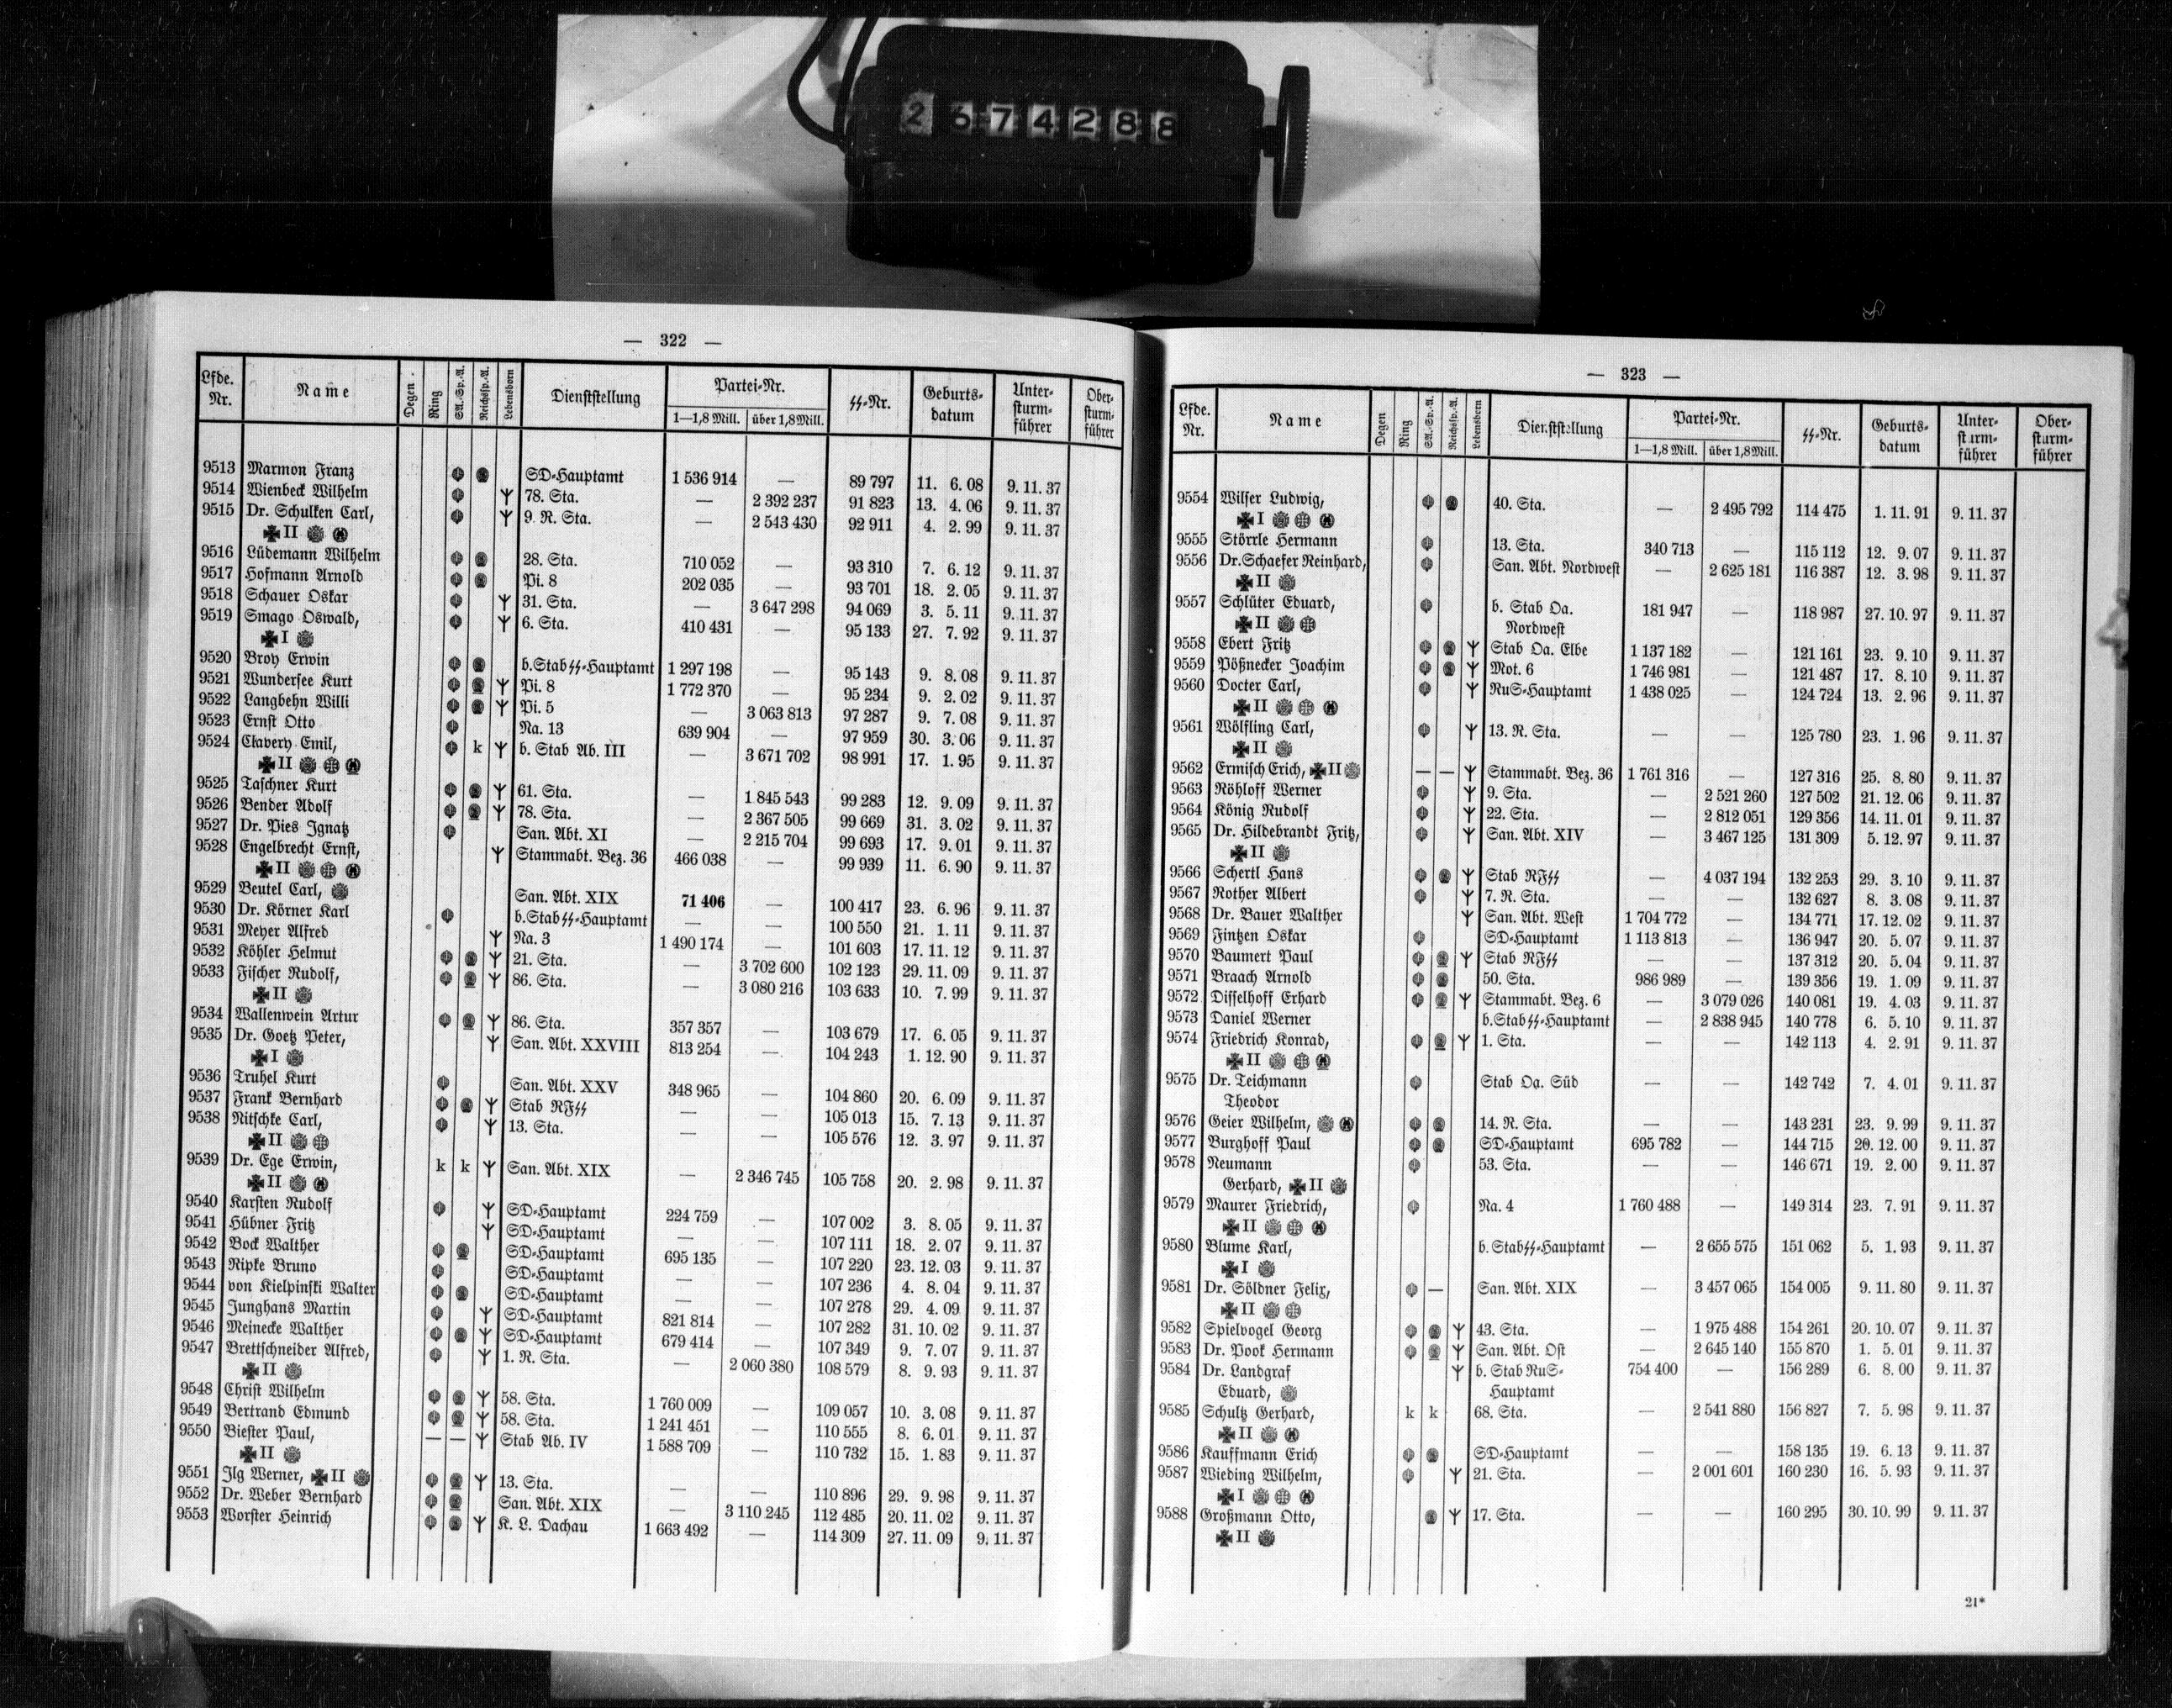 2674288
— 322 —
Lfde. Nr. Name Degen Ring SA.-Sp.-A. Reichsp.-A. Lebensborn Dienststellung Partei-Nr. 1—1,8 Mill. über 1,8 Mill. SS-Nr. Geburts-datum Unter-sturm-führer Ober-sturm-führer
9513 Marmon Franz SD-Hauptamt 1 536 914 — 89 797 11. 6. 08 9. 11. 37
9514 Wienbeck Wilhelm 78. Sta. — 2 392 237 91 823 13. 4. 06 9. 11. 37
9515 Dr. Schulken Carl, 9. R. Sta. — 2 543 430 92 911 4. 2. 99 9. 11. 37
II
9516 Lüdemann Wilhelm 28. Sta. 710 052 — 93 310 7. 6. 12 9. 11. 37
9517 Hofmann Arnold Pi. 8 202 035 — 93 701 18. 2. 05 9. 11. 37
9518 Schauer Oskar 31. Sta. — 3 647 298 94 069 3. 5. 11 9. 11. 37
9519 Smago Oswald, 6. Sta. 410 431 — 95 133 27. 7. 92 9. 11. 37
I
9520 Broy Erwin b. Stab SS-Hauptamt 1 297 198 — 95 143 9. 8. 08 9. 11. 37
9521 Wundersee Kurt Pi. 8 1 772 370 — 95 234 9. 2. 02 9. 11. 37
9522 Langbehn Willi Pi. 5 — 3 063 813 97 287 9. 7. 08 9. 11. 37
9523 Ernst Otto Na. 13 639 904 — 97 959 30. 3. 06 9. 11. 37
9524 Clavery Emil, k b. Stab Ab. III — 3 671 702 98 991 17. 1. 95 9. 11. 37
II
9525 Taschner Kurt 61. Sta. — 1 845 543 99 283 12. 9. 09 9. 11. 37
9526 Bender Adolf 78. Sta. — 2 367 505 99 669 31. 3. 02 9. 11. 37
9527 Dr. Pies Ignatz San. Abt. XI — 2 215 704 99 693 17. 9. 01 9. 11. 37
9528 Engelbrecht Ernst, Stammabt. Bez. 36 466 038 — 99 939 11. 6. 90 9. 11. 37
II
9529 Beutel Carl, San. Abt. XIX 71 406 — 100 417 23. 6. 96 9. 11. 37
9530 Dr. Körner Karl b. Stab SS-Hauptamt — 100 550 21. 1. 11 9. 11. 37
9531 Meyer Alfred Na. 3 1 490 174 — 101 603 17. 11. 12 9. 11. 37
9532 Köhler Helmut 21. Sta. — 3 702 600 102 123 29. 11. 09 9. 11. 37
9533 Fischer Rudolf, 86. Sta. — 3 080 216 103 633 10. 7. 99 9. 11. 37
II
9534 Wallenwein Artur 86. Sta. 357 357 — 103 679 17. 6. 05 9. 11. 37
9535 Dr. Goetz Peter, San. Abt. XXVIII 813 254 — 104 243 1. 12. 90 9. 11. 37
I
9536 Truhel Kurt San. Abt. XXV 348 965 — 104 860 20. 6. 09 9. 11. 37
9537 Frank Bernhard Stab RFSS — — 105 013 15. 7. 13 9. 11. 37
9538 Nitschke Carl, 13. Sta. — — 105 576 12. 3. 97 9. 11. 37
II
9539 Dr. Ege Erwin, k k San. Abt. XIX — 2 346 745 105 758 20. 2. 98 9. 11. 37
II
9540 Karsten Rudolf SD-Hauptamt 224 759 — 107 002 3. 8. 05 9. 11. 37
9541 Hübner Fritz SD-Hauptamt — — 107 111 18. 2. 07 9. 11. 37
9542 Bock Walther SD-Hauptamt 695 135 — 107 220 23. 12. 03 9. 11. 37
9543 Ripke Bruno SD-Hauptamt — — 107 236 4. 8. 04 9. 11. 37
9544 von Kielpinski Walter SD-Hauptamt — — 107 278 29. 4. 09 9. 11. 37
9545 Junghans Martin SD-Hauptamt 821 814 — 107 282 31. 10. 02 9. 11. 37
9546 Meinecke Walther SD-Hauptamt 679 414 — 107 349 9. 7. 07 9. 11. 37
9547 Brettschneider Alfred, 1. R. Sta. — 2 060 380 108 579 8. 9. 93 9. 11. 37
II
9548 Christ Wilhelm 58. Sta. 1 760 009 — 109 057 10. 3. 08 9. 11. 37
9549 Bertrand Edmund 58. Sta. 1 241 451 — 110 555 8. 6. 01 9. 11. 37
9550 Biester Paul, — — Stab Ab. IV 1 588 709 — 110 732 15. 1. 83 9. 11. 37
II
9551 Ilg Werner, II 13. Sta. — — 110 896 29. 9. 98 9. 11. 37
9552 Dr. Weber Bernhard San. Abt. XIX — 3 110 245 112 485 20. 11. 02 9. 11. 37
9553 Worster Heinrich K. L. Dachau 1 663 492 — 114 309 27. 11. 09 9. 11. 37
— 323 —
Lfde. Nr. Name Degen Ring SA.-Sp.-A. Reichsp.-A. Lebensborn Dienststellung Partei-Nr. 1—1,8 Mill. über 1,8 Mill. SS-Nr. Geburts-datum Unter-sturm-führer Ober-sturm-führer
9554 Wilser Ludwig, 40. Sta. — 2 495 792 114 475 1. 11. 91 9. 11. 37
I
9555 Störrle Hermann 13. Sta. 340 713 — 115 112 12. 9. 07 9. 11. 37
9556 Dr. Schaefer Reinhard, San. Abt. Nordwest — 2 625 181 116 387 12. 3. 98 9. 11. 37
II
9557 Schlüter Eduard, b. Stab Oa. 181 947 — 118 987 27. 10. 97 9. 11. 37
II Nordwest
9558 Ebert Fritz Stab Oa. Elbe 1 137 182 — 121 161 23. 9. 10 9. 11. 37
9559 Pößnecker Joachim Mot. 6 1 746 981 — 121 487 17. 8. 10 9. 11. 37
9560 Docter Carl, RuS-Hauptamt 1 438 025 — 124 724 13. 2. 96 9. 11. 37
II
9561 Wölfling Carl, 13. R. Sta. — — 125 780 23. 1. 96 9. 11. 37
II
9562 Ermisch Erich, II — — Stammabt. Bez. 36 1 761 316 — 127 316 25. 8. 80 9. 11. 37
9563 Röhloff Werner 9. Sta. — 2 521 260 127 502 21. 12. 06 9. 11. 37
9564 König Rudolf 22. Sta. — 2 812 051 129 356 14. 11. 01 9. 11. 37
9565 Dr. Hildebrandt Fritz, San. Abt. XIV — 3 467 125 131 309 5. 12. 97 9. 11. 37
II
9566 Schertl Hans Stab RFSS — 4 037 194 132 253 29. 3. 10 9. 11. 37
9567 Rother Albert 7. R. Sta. — — 132 627 8. 3. 08 9. 11. 37
9568 Dr. Bauer Walther San. Abt. West 1 704 772 — 134 771 17. 12. 02 9. 11. 37
9569 Fintzen Oskar SD-Hauptamt 1 113 813 — 136 947 20. 5. 07 9. 11. 37
9570 Baumert Paul Stab RFSS — — 137 312 20. 5. 04 9. 11. 37
9571 Braach Arnold 50. Sta. 986 989 — 139 356 19. 1. 09 9. 11. 37
9572 Disselhoff Erhard Stammabt. Bez. 6 — 3 079 026 140 081 19. 4. 03 9. 11. 37
9573 Daniel Werner b. Stab SS-Hauptamt — 2 838 945 140 778 6. 5. 10 9. 11. 37
9574 Friedrich Konrad, 1. Sta. — — 142 113 4. 2. 91 9. 11. 37
II
9575 Dr. Teichmann Stab Oa. Süd — — 142 742 7. 4. 01 9. 11. 37
Theodor
9576 Geier Wilhelm, 14. R. Sta. — — 143 231 23. 9. 99 9. 11. 37
9577 Burghoff Paul SD-Hauptamt 695 782 — 144 715 20. 12. 00 9. 11. 37
9578 Neumann 53. Sta. — — 146 671 19. 2. 00 9. 11. 37
Gerhard, II
9579 Maurer Friedrich, Na. 4 1 760 488 — 149 314 23. 7. 91 9. 11. 37
II
9580 Blume Karl, b. Stab SS-Hauptamt — 2 655 575 151 062 5. 1. 93 9. 11. 37
I
9581 Dr. Söldner Felix, — San. Abt. XIX — 3 457 065 154 005 9. 11. 80 9. 11. 37
II
9582 Spielvogel Georg 43. Sta. — 1 975 488 154 261 20. 10. 07 9. 11. 37
9583 Dr. Pook Hermann San. Abt. Ost — 2 645 140 155 870 1. 5. 01 9. 11. 37
9584 Dr. Landgraf b. Stab RuS- 754 400 — 156 289 6. 8. 00 9. 11. 37
Eduard, Hauptamt
9585 Schultz Gerhard, k k 68. Sta. — 2 541 880 156 827 7. 5. 98 9. 11. 37
II
9586 Kauffmann Erich SD-Hauptamt — — 158 135 19. 6. 13 9. 11. 37
9587 Wieding Wilhelm, 21. Sta. — 2 001 601 160 230 16. 5. 93 9. 11. 37
I
9588 Großmann Otto, 17. Sta. — — 160 295 30. 10. 99 9. 11. 37
II
21*